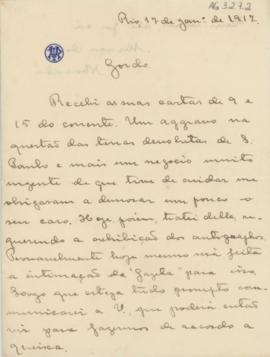 AG 3.2.7.2
Rio, 17 de jan.º de 1917.
Gordo.
Recebi as suas cartas de 9 e
15 do corrente. Um aggravo na
questão das terras devolutas de S.
Paulo e mais um negocio muito
urgente de que tive de cuidar me
obrigaram a demorar um pouco o
seu caso. Hoje, porém, tratei delle, re-
querendo a exhibição dos autographos.
Provavelmente hoje mesmo será feita
a intimação da "Gazeta" para isso.
Logo que esteja tudo prompto com-
municarei a V. que poderá então
vir para fazermos de accordo a
queixa.